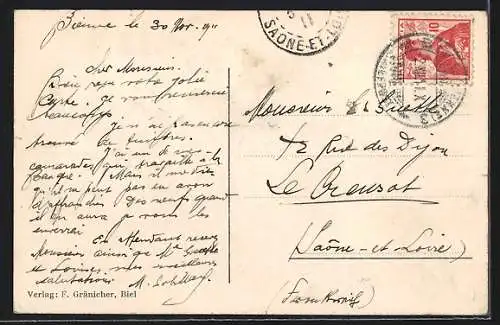 Bienne le 30 Nov. 11
Cher Monsieur
Bien reçu votre jolie
Carte. Je vous remercie
beaucoup
Je n'ai pas encore
trouvé de timbres.
J'ai un de mes
camarades qui travaille à la
Banque. Mais il me dit
qu'il ne peut pas en avoir
d'affranchis. Des neufs quand
il en aura je vous les
enverrai
En attendant recevez
Monsieur ainsi que
et Louise, mes meilleures
salutations
M.
Verlag: F. Gränicher, Biel
SAÔNE-ET-LOIRE
11
10
Monsieur
72 Rue des Dijon
Le Creusot
(Saône-et-Loire)
(Frankreich)